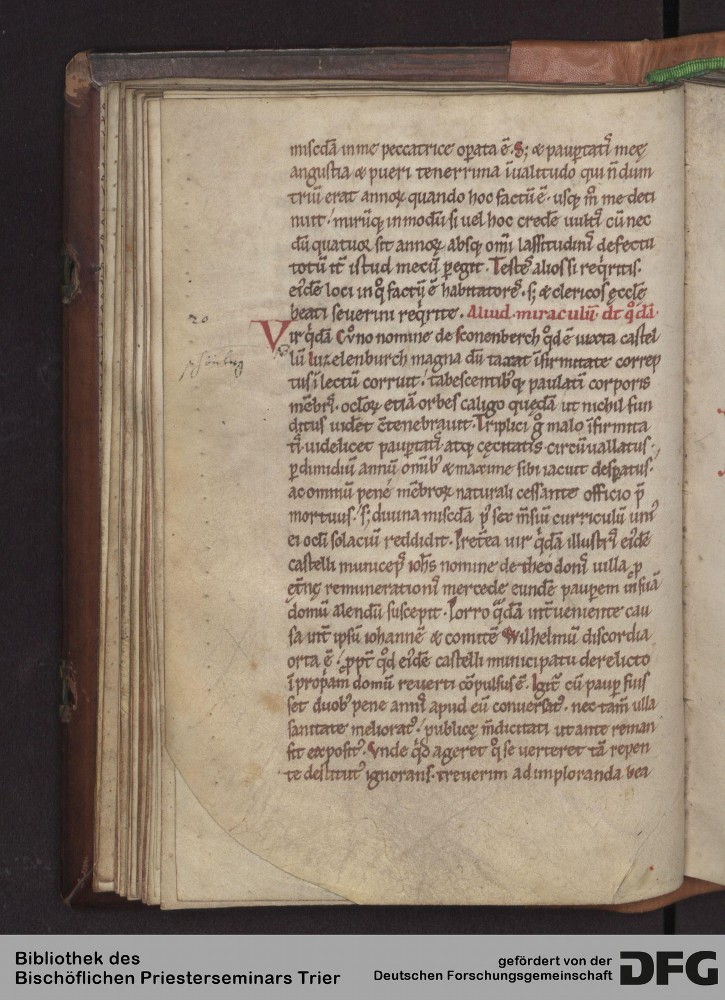 miscdā in me peccatrice opata ē. S; & paup̄tati' meę
angustia & pueri tenerrima ĩualitudo qui ñdum
triū erat annoꝝ quando hoc factū ē. usq; m̊ me deti
nuit. mirūq; in modū si uel hoc crede uulti' cū nec
dū quatuor sit annoꝝ absq; om̄i lassitudini' defectu
totū it̄ istud mecū pegit. Teste' alios si reqͥritis.
eidē loci in qͦ factū ē habitatore'. s; & clericos ęcclē
beati seuerini reqͥrite. Aliud miraculū. dt qͦdā.
20
Vir qͥdā Cŏno nomine de sconenberch qd̄ ē iuxta castel
lū luzelenburch magna dū taxat ĩfirmitate correp
tus ĩ lectū corruit. tabescentibꝰq; paulatī corporis
mēbri'. oclōꝝ etiā orbes caligo quedā ut nichil fun
ditus uidēt c̄tenebrauit. Triplici g̊ malo ĩfirmita
ti' uidelicet paup̄tati' atq; cęcitatis circūuallatus.
p dimidiū annū omībꝰ & maxime sibi iacuit despatus.
ac omniū pene mēbroꝝ naturali cessante officio p̄
mortuus. s; diuina miscdā pꝰ sex m̄siū curriculū uni'
ei ocli solaciū reddidit. Pret̄ea uir qͥdā illustri' eidē
castelli municeps iohs nomine de theodoni' uilla p
et̄nę remunerationi' mercede eundē paupem in suā
domū alendū suscepit. Porro qͣdā int̄ueniente cau
sa int̄ ipsū iohannē & comitē Wilhelmū discordia
orta ē. ꝓpt̄ qd̄ eidē castelli municipatu derelicto
ĩ propͥam domū reuerti cōpulsus ē. Igit̄ cū paup fuis
set duobꝰ pene anni' apud eū conuersatꝰ. nec tam̄ ulla
sanitate melioratꝰ. publicę m̄dicitati ut ante reman
sit expositꝰ. Vnde qͥd ageret qͦ se uerteret tā repen
te destitutꝰ ignorans. treuerim ad imploranda bea
Bibliothek des
Bischöflichen Priesterseminars Trier
gefördert von der
Deutschen Forschungsgemeinschaft
DFG